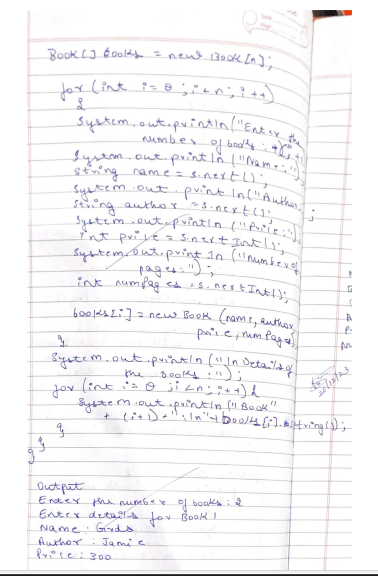 Book[] books = new Book[n];
for (int i = 0; i < n; i++)
{
System.out.println("Enter the
number of books:
System.out.println("Name:");
String name = s.next();
System.out.println("Author:
String author = s.next();
System.out.println("Price:");
int price = s.nextInt();
System.out.println("number of
pages:");
int numPages = s.nextInt();
books[i] = new Book (name, author,
price, numPages);
}
System.out.println("\n Details of
the books:");
for (int i = 0; i < n; i++) {
System.out.println("Book"
+ (i+1) + ":\n" + books[i].toString());
}
}
}
Output
Enter the number of books: 2
Enter details for Book 1
Name: Grds
Author: Jamie
Price: 300